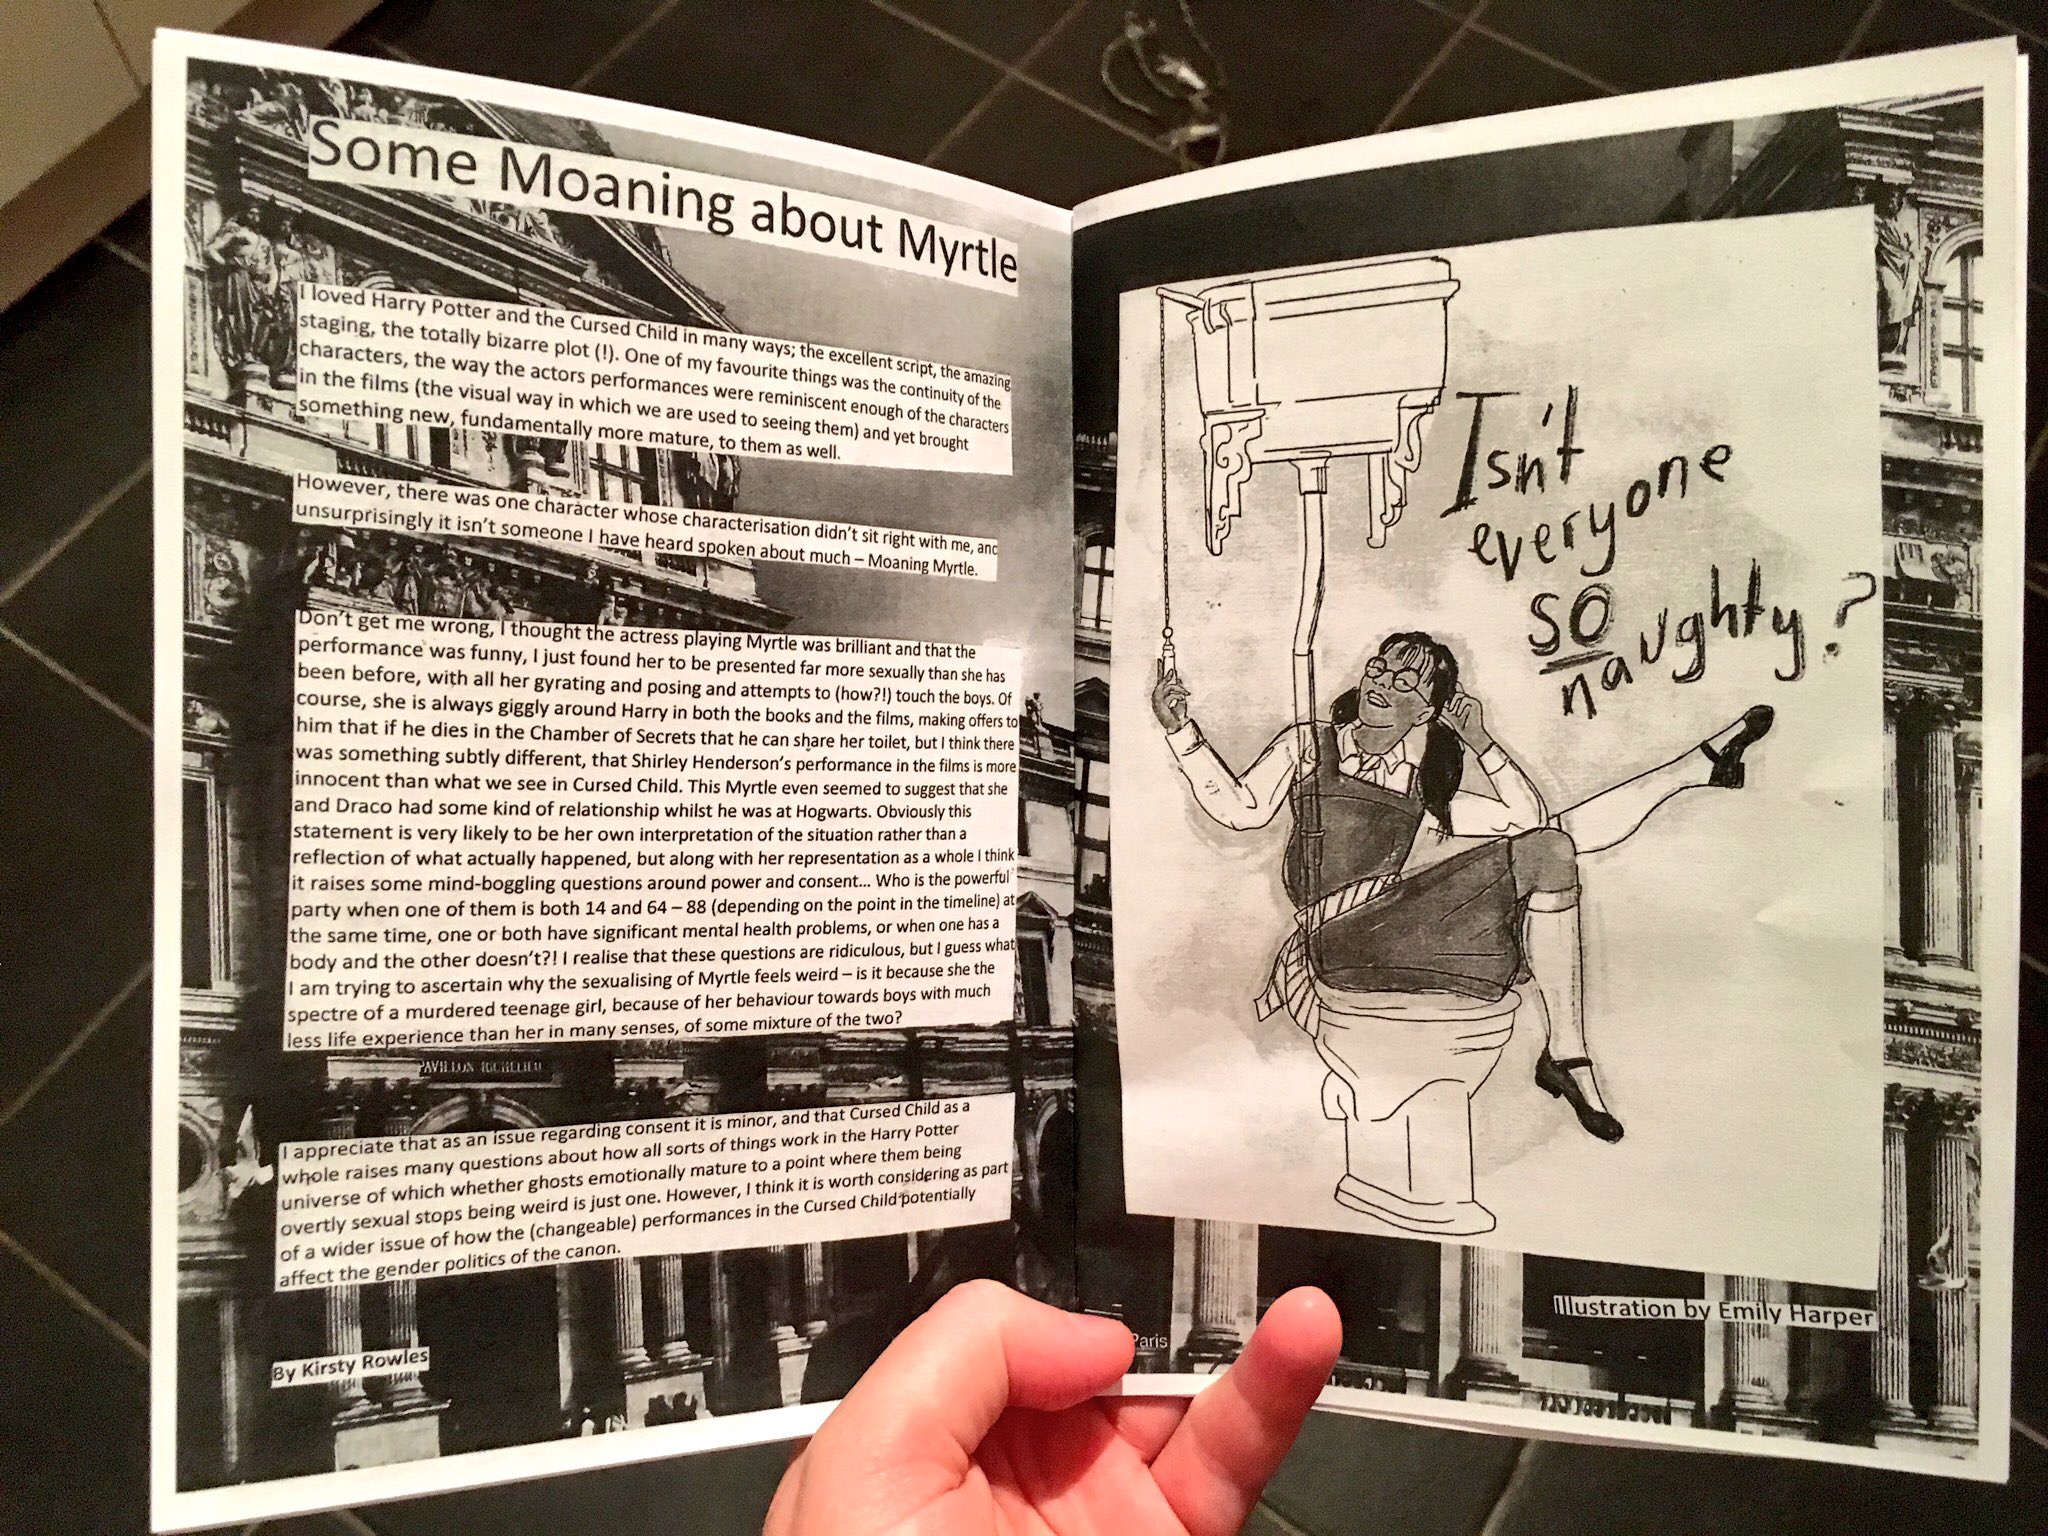 Some Moaning about Myrtle
I loved Harry Potter and the Cursed Child in many ways; the excellent script, the amazing
staging, the totally bizarre plot (!). One of my favourite things was the continuity of the
characters, the way the actors performances were reminiscent enough of the characters
in the films (the visual way in which we are used to seeing them) and yet brought
something new, fundamentally more mature, to them as well.
However, there was one character whose characterisation didn't sit right with me, and
unsurprisingly it isn't someone I have heard spoken about much – Moaning Myrtle.
Don't get me wrong, I thought the actress playing Myrtle was brilliant and that the
performance was funny, I just found her to be presented far more sexually than she has
been before, with all her gyrating and posing and attempts to (how?!) touch the boys. Of
course, she is always giggly around Harry in both the books and the films, making offers to
him that if he dies in the Chamber of Secrets that he can share her toilet, but I think there
was something subtly different, that Shirley Henderson's performance in the films is more
innocent than what we see in Cursed Child. This Myrtle even seemed to suggest that she
and Draco had some kind of relationship whilst he was at Hogwarts. Obviously this
statement is very likely to be her own interpretation of the situation rather than a
reflection of what actually happened, but along with her representation as a whole I think
it raises some mind-boggling questions around power and consent... Who is the powerful
party when one of them is both 14 and 64 – 88 (depending on the point in the timeline) at
the same time, one or both have significant mental health problems, or when one has a
body and the other doesn't?! I realise that these questions are ridiculous, but I guess what
I am trying to ascertain why the sexualising of Myrtle feels weird – is it because she the
spectre of a murdered teenage girl, because of her behaviour towards boys with much
less life experience than her in many senses, of some mixture of the two?
PAVILLON RICHELIEU
I appreciate that as an issue regarding consent it is minor, and that Cursed Child as a
whole raises many questions about how all sorts of things work in the Harry Potter
universe of which whether ghosts emotionally mature to a point where them being
overtly sexual stops being weird is just one. However, I think it is worth considering as part
of a wider issue of how the (changeable) performances in the Cursed Child potentially
affect the gender politics of the canon.
By Kirsty Rowles
Isn't
everyone
SO
naughty?
Illustration by Emily Harper
Paris